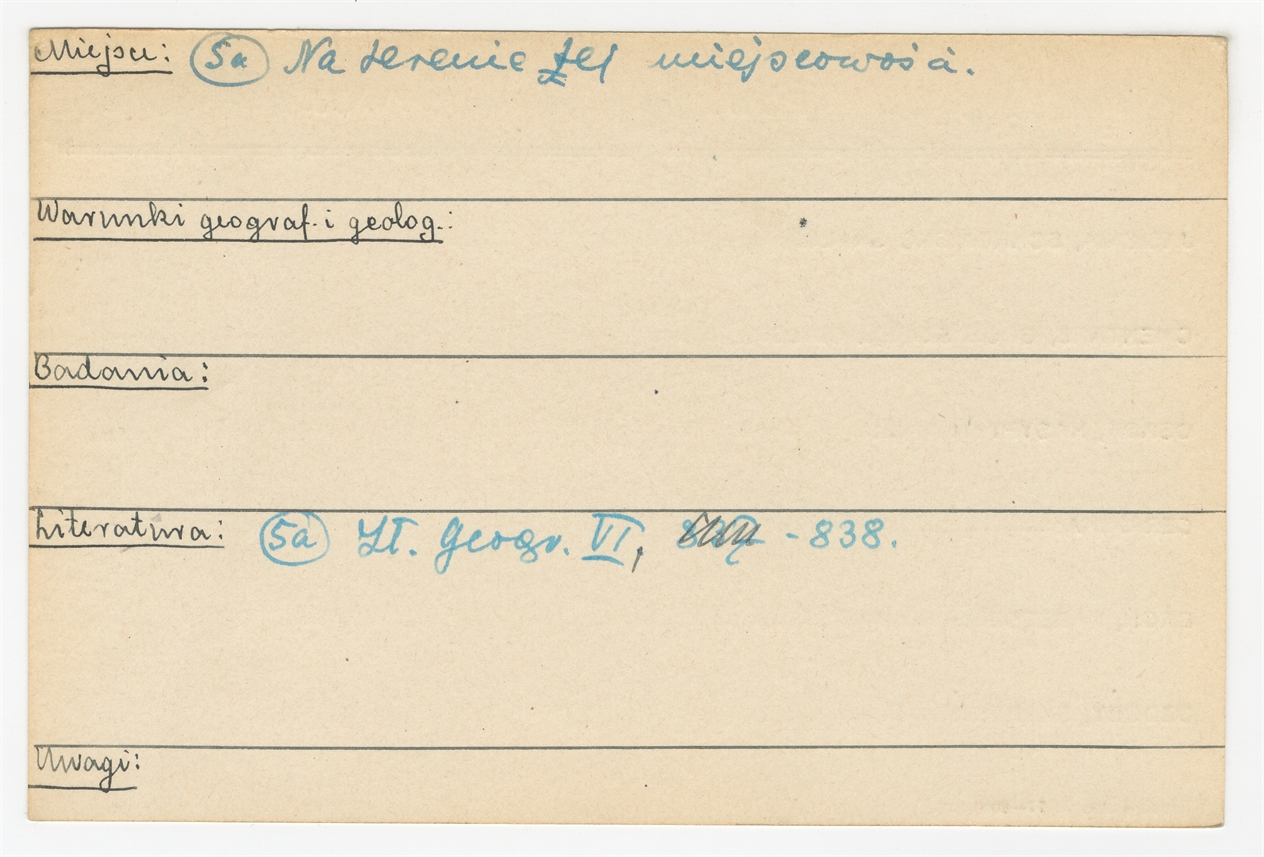 Miejsce: 5a Na terenie tej miejscowości.
Warunki geograf. i geolog.:
Badania:
Literatura: 5a Sł. Geogr. VI, - 838.
Uwagi: